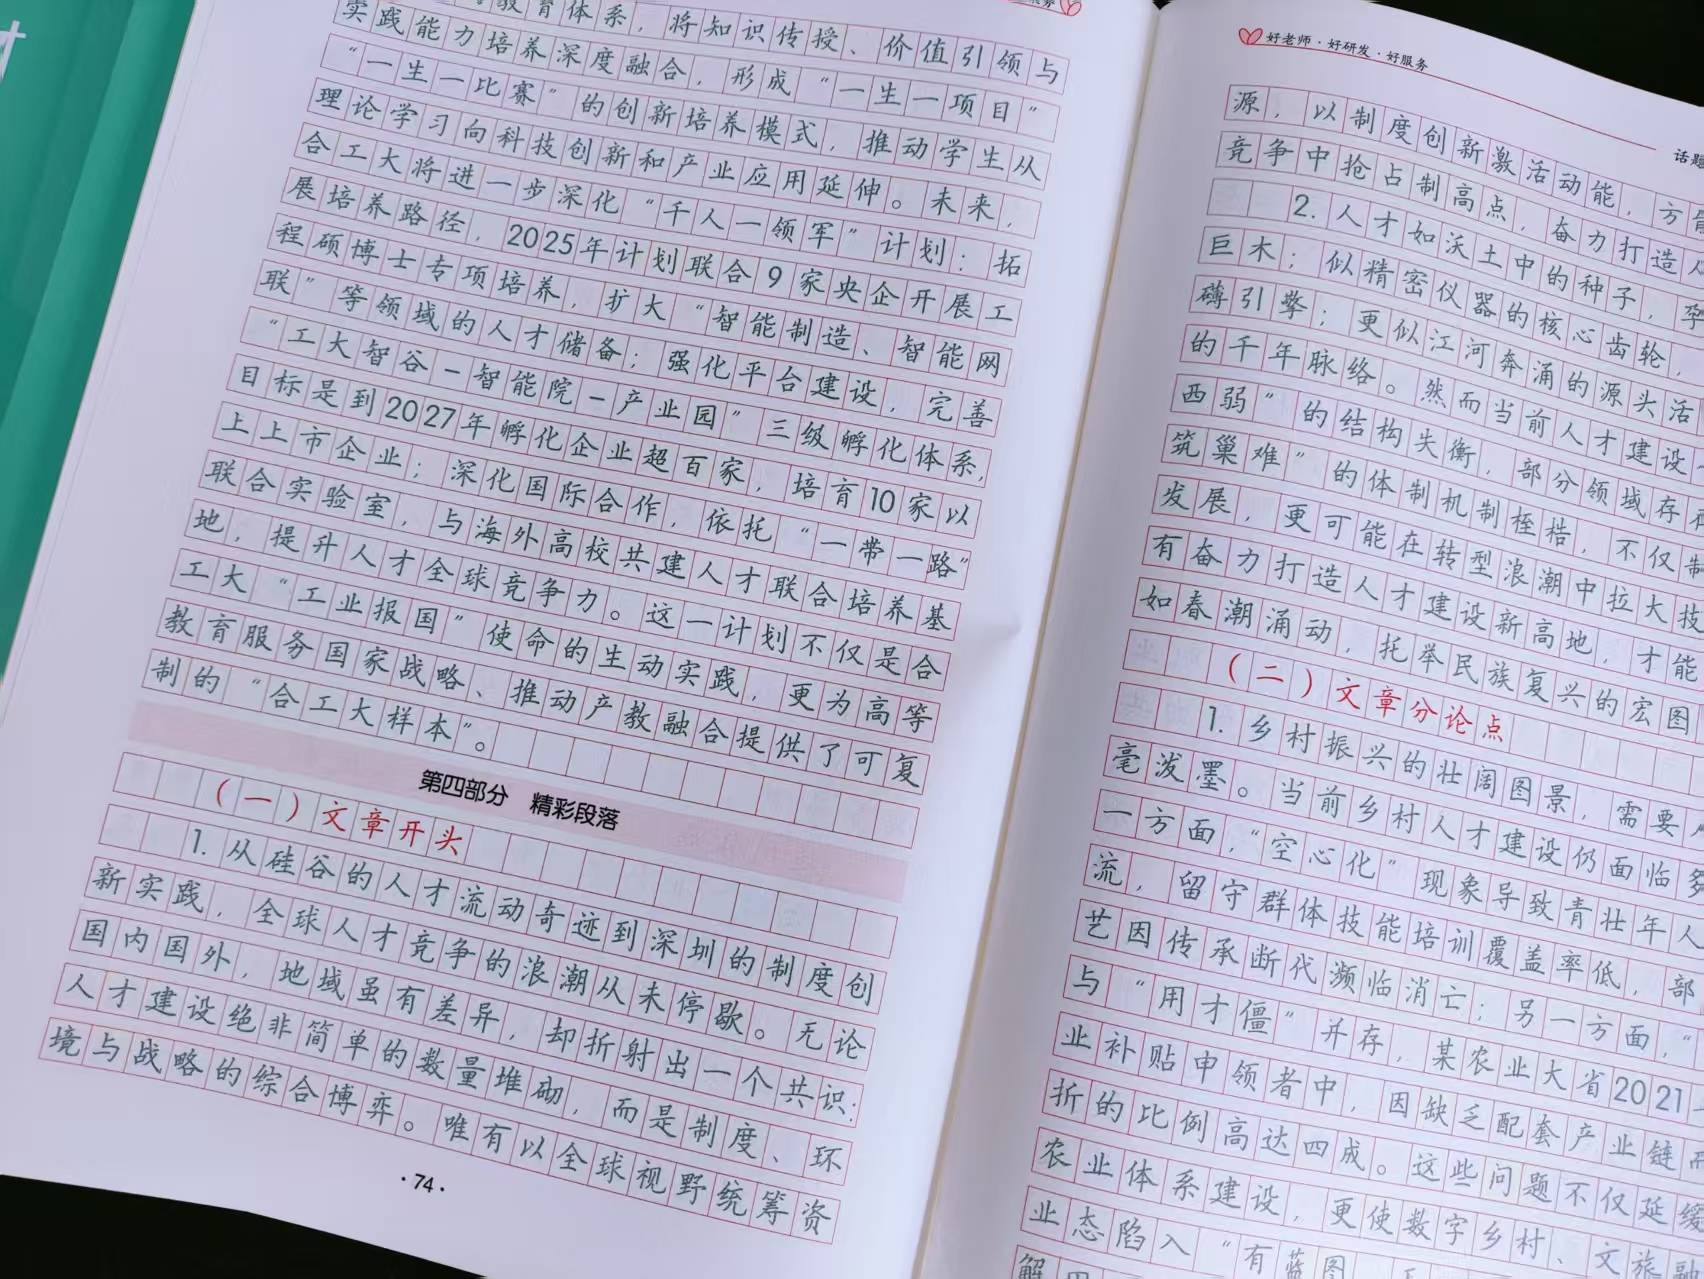 教育体系，将知识传授、价值引领与
实践能力培养深度融合，形成“一生一项目”
“一生一比赛”的创新培养模式，推动学生从
理论学习向科技创新和产业应用延伸。未来，
合工大将进一步深化“千人一领军”计划：拓
展培养路径，2025年计划联合9家央企开展工
程硕博士专项培养，扩大“智能制造、智能网
联”等领域的人才储备；强化平台建设，完善
“工大智谷—智能院—产业园”三级孵化体系，
目标是到2027年孵化企业超百家，培育10家以
上上市企业；深化国际合作，依托“一带一路”
联合实验室，与海外高校共建人才联合培养基
地，提升人才全球竞争力。这一计划不仅是合
工大“工业报国”使命的生动实践，更为高等
教育服务国家战略、推动产教融合提供了可复
制的“合工大样本”。
第四部分 精彩段落
（一）文章开头
1. 从硅谷的人才流动奇迹到深圳的制度创
新实践，全球人才竞争的浪潮从未停歇。无论
国内国外，地域虽有差异，却折射出一个共识：
人才建设绝非简单的数量堆砌，而是制度、环
境与战略的综合博弈。唯有以全球视野统筹资
·74·
好老师·好研发·好服务
话题
源，以制度创新激活动能，方能
竞争中抢占制高点，奋力打造人
2. 人才如沃土中的种子，孕
巨木；似精密仪器的核心齿轮，
礴引擎；更似江河奔涌的源头活
的千年脉络。然而当前人才建设
西弱”的结构失衡，部分领域存在
筑巢难”的体制机制桎梏，不仅制
发展，更可能在转型浪潮中拉大技
有奋力打造人才建设新高地，才能
如春潮涌动，托举民族复兴的宏图
（二）文章分论点
1. 乡村振兴的壮阔图景，需要人
毫泼墨。当前乡村人才建设仍面临多
一方面，“空心化”现象导致青壮年人
流，留守群体技能培训覆盖率低，部
艺因传承断代濒临消亡；另一方面，“
与“用才僵”并存，某农业大省2021
业补贴申领者中，因缺乏配套产业链而
折的比例高达四成。这些问题不仅延缓
农业体系建设，更使数字乡村、文旅融
业态陷入“有蓝图